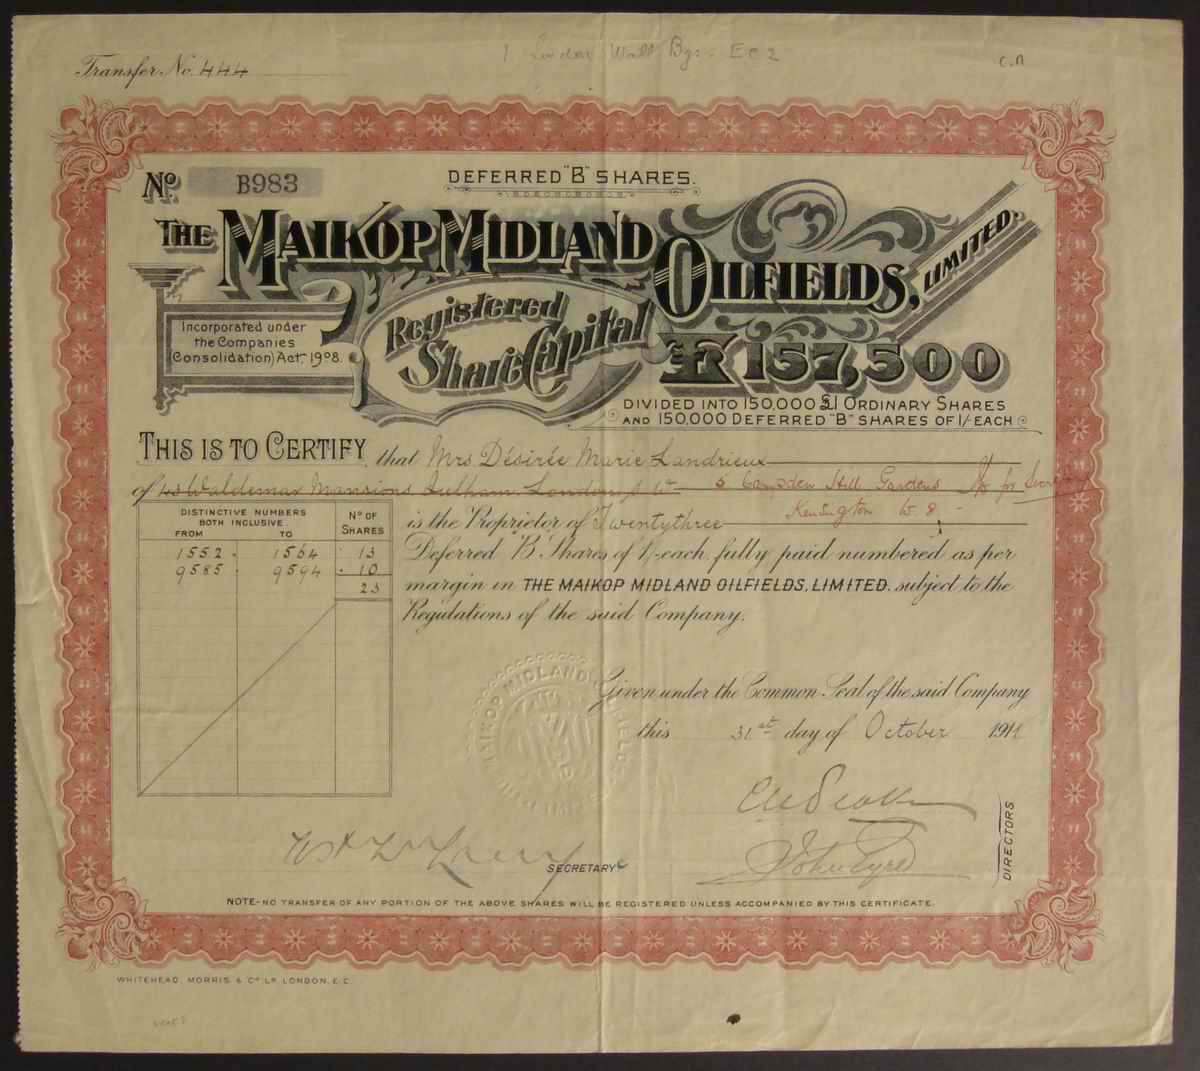 1 London Wall Bgs. EC2
C.A
Transfer No. 444
No. B983
DEFERRED "B" SHARES.
THE MAIKOP MIDLAND OILFIELDS, LIMITED.
Incorporated under
the Companies
Consolidation) Act, 1908.
Registered
Share Capital
£157,500
DIVIDED INTO 150,000 £1 ORDINARY SHARES
AND 150,000 DEFERRED "B" SHARES OF 1/- EACH
THIS IS TO CERTIFY that Mrs Désirée Marie Landrieux
of Waldemar Mansions Fulham London S W 5 Campden Hill Gardens for Secretary
Kensington W 8.
is the Proprietor of Twentythree
Deferred "B" Shares of 1/- each, fully paid numbered as per
margin in THE MAIKOP MIDLAND OILFIELDS, LIMITED. subject to the
Regulations of the said Company.
DISTINCTIVE NUMBERS
BOTH INCLUSIVE.
FROM TO
No OF
SHARES
1552 1564 13
9585 9594 10
23
Given under the Common Seal of the said Company
this 31st day of October 1911
John Eyre
DIRECTORS
SECRETARY
NOTE-NO TRANSFER OF ANY PORTION OF THE ABOVE SHARES WILL BE REGISTERED UNLESS ACCOMPANIED BY THIS CERTIFICATE.
WHITEHEAD, MORRIS & Co LD LONDON, E.C.